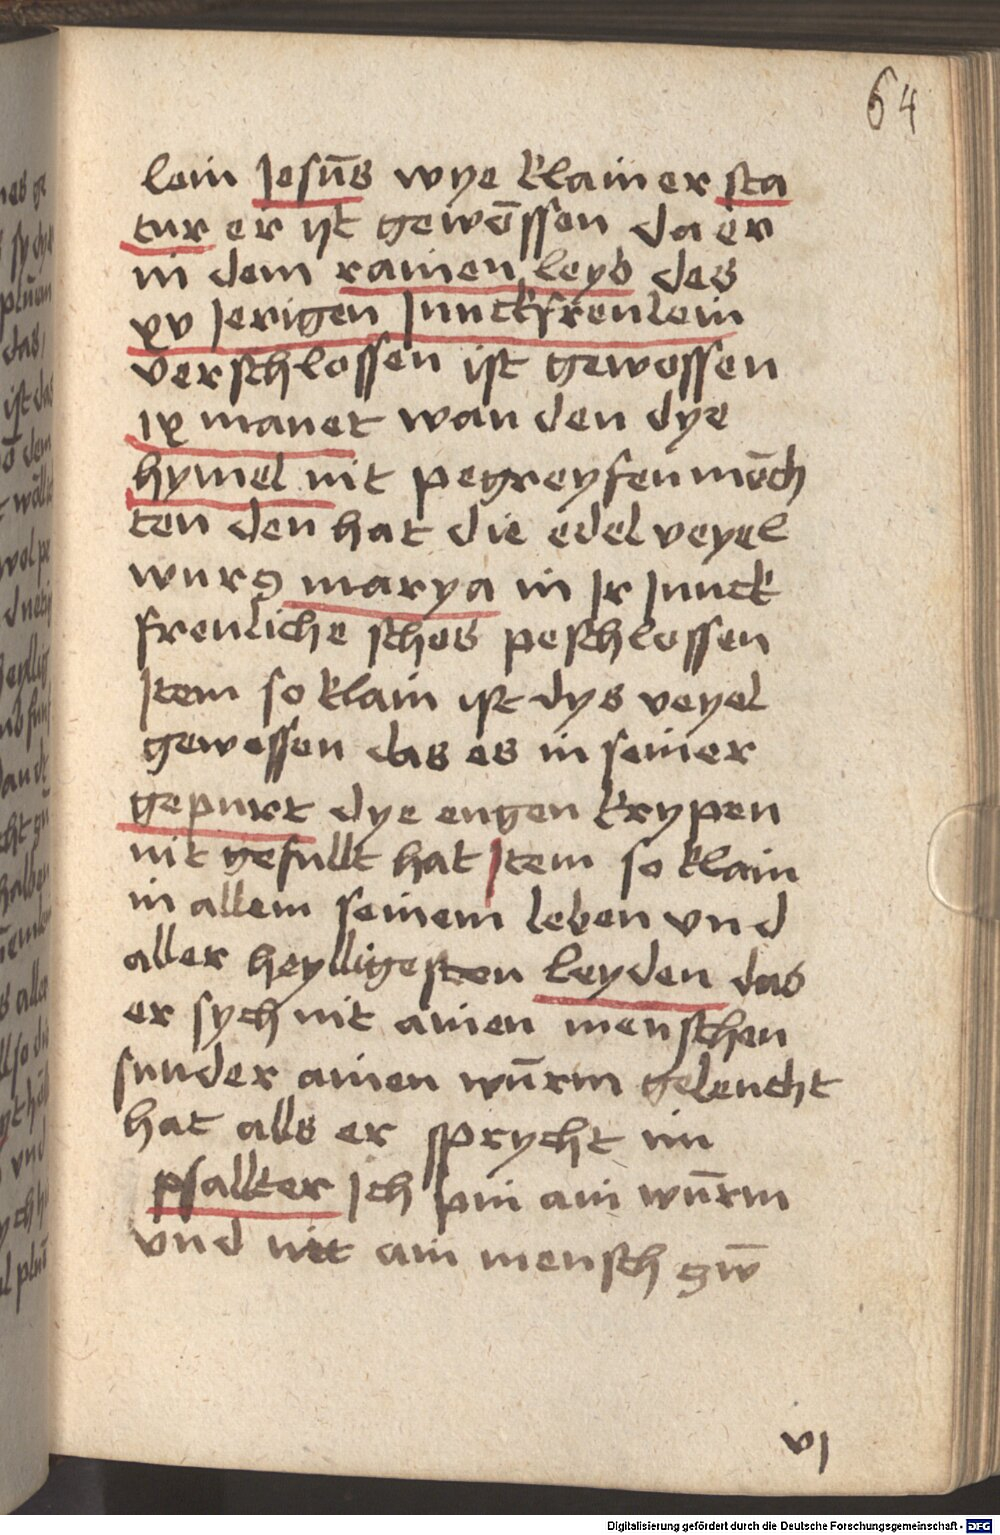 64
lein Jesūs wye klainer sta
tur er yst gewēssen da er
in dem rainen leyb des
xv Jerigen Junckfrenlein
verschlossen ist gewessen
ix manet wan den dye
hymel nit pegreyfen mēch
ten den hat die edel veyel
wurcz marya in Jr Junck
frenliche schos peschlossen
Jtem so klain ist dys veyel
gewessen das es in seiner
gepurt dye engen krypen
nit gefullt hat Jtem so klain
in allem seinem leben vnd
aller heylligesten leyden das
er sych nit ainen menschen
sunder ainen wūrm geleucht
hat alls er sprycht im
psallter Jch pin ain wūrm
vnd nit ain mensch gw̄
vj
Digitalisierung gefördert durch die Deutsche Forschungsgemeinschaft - DFG